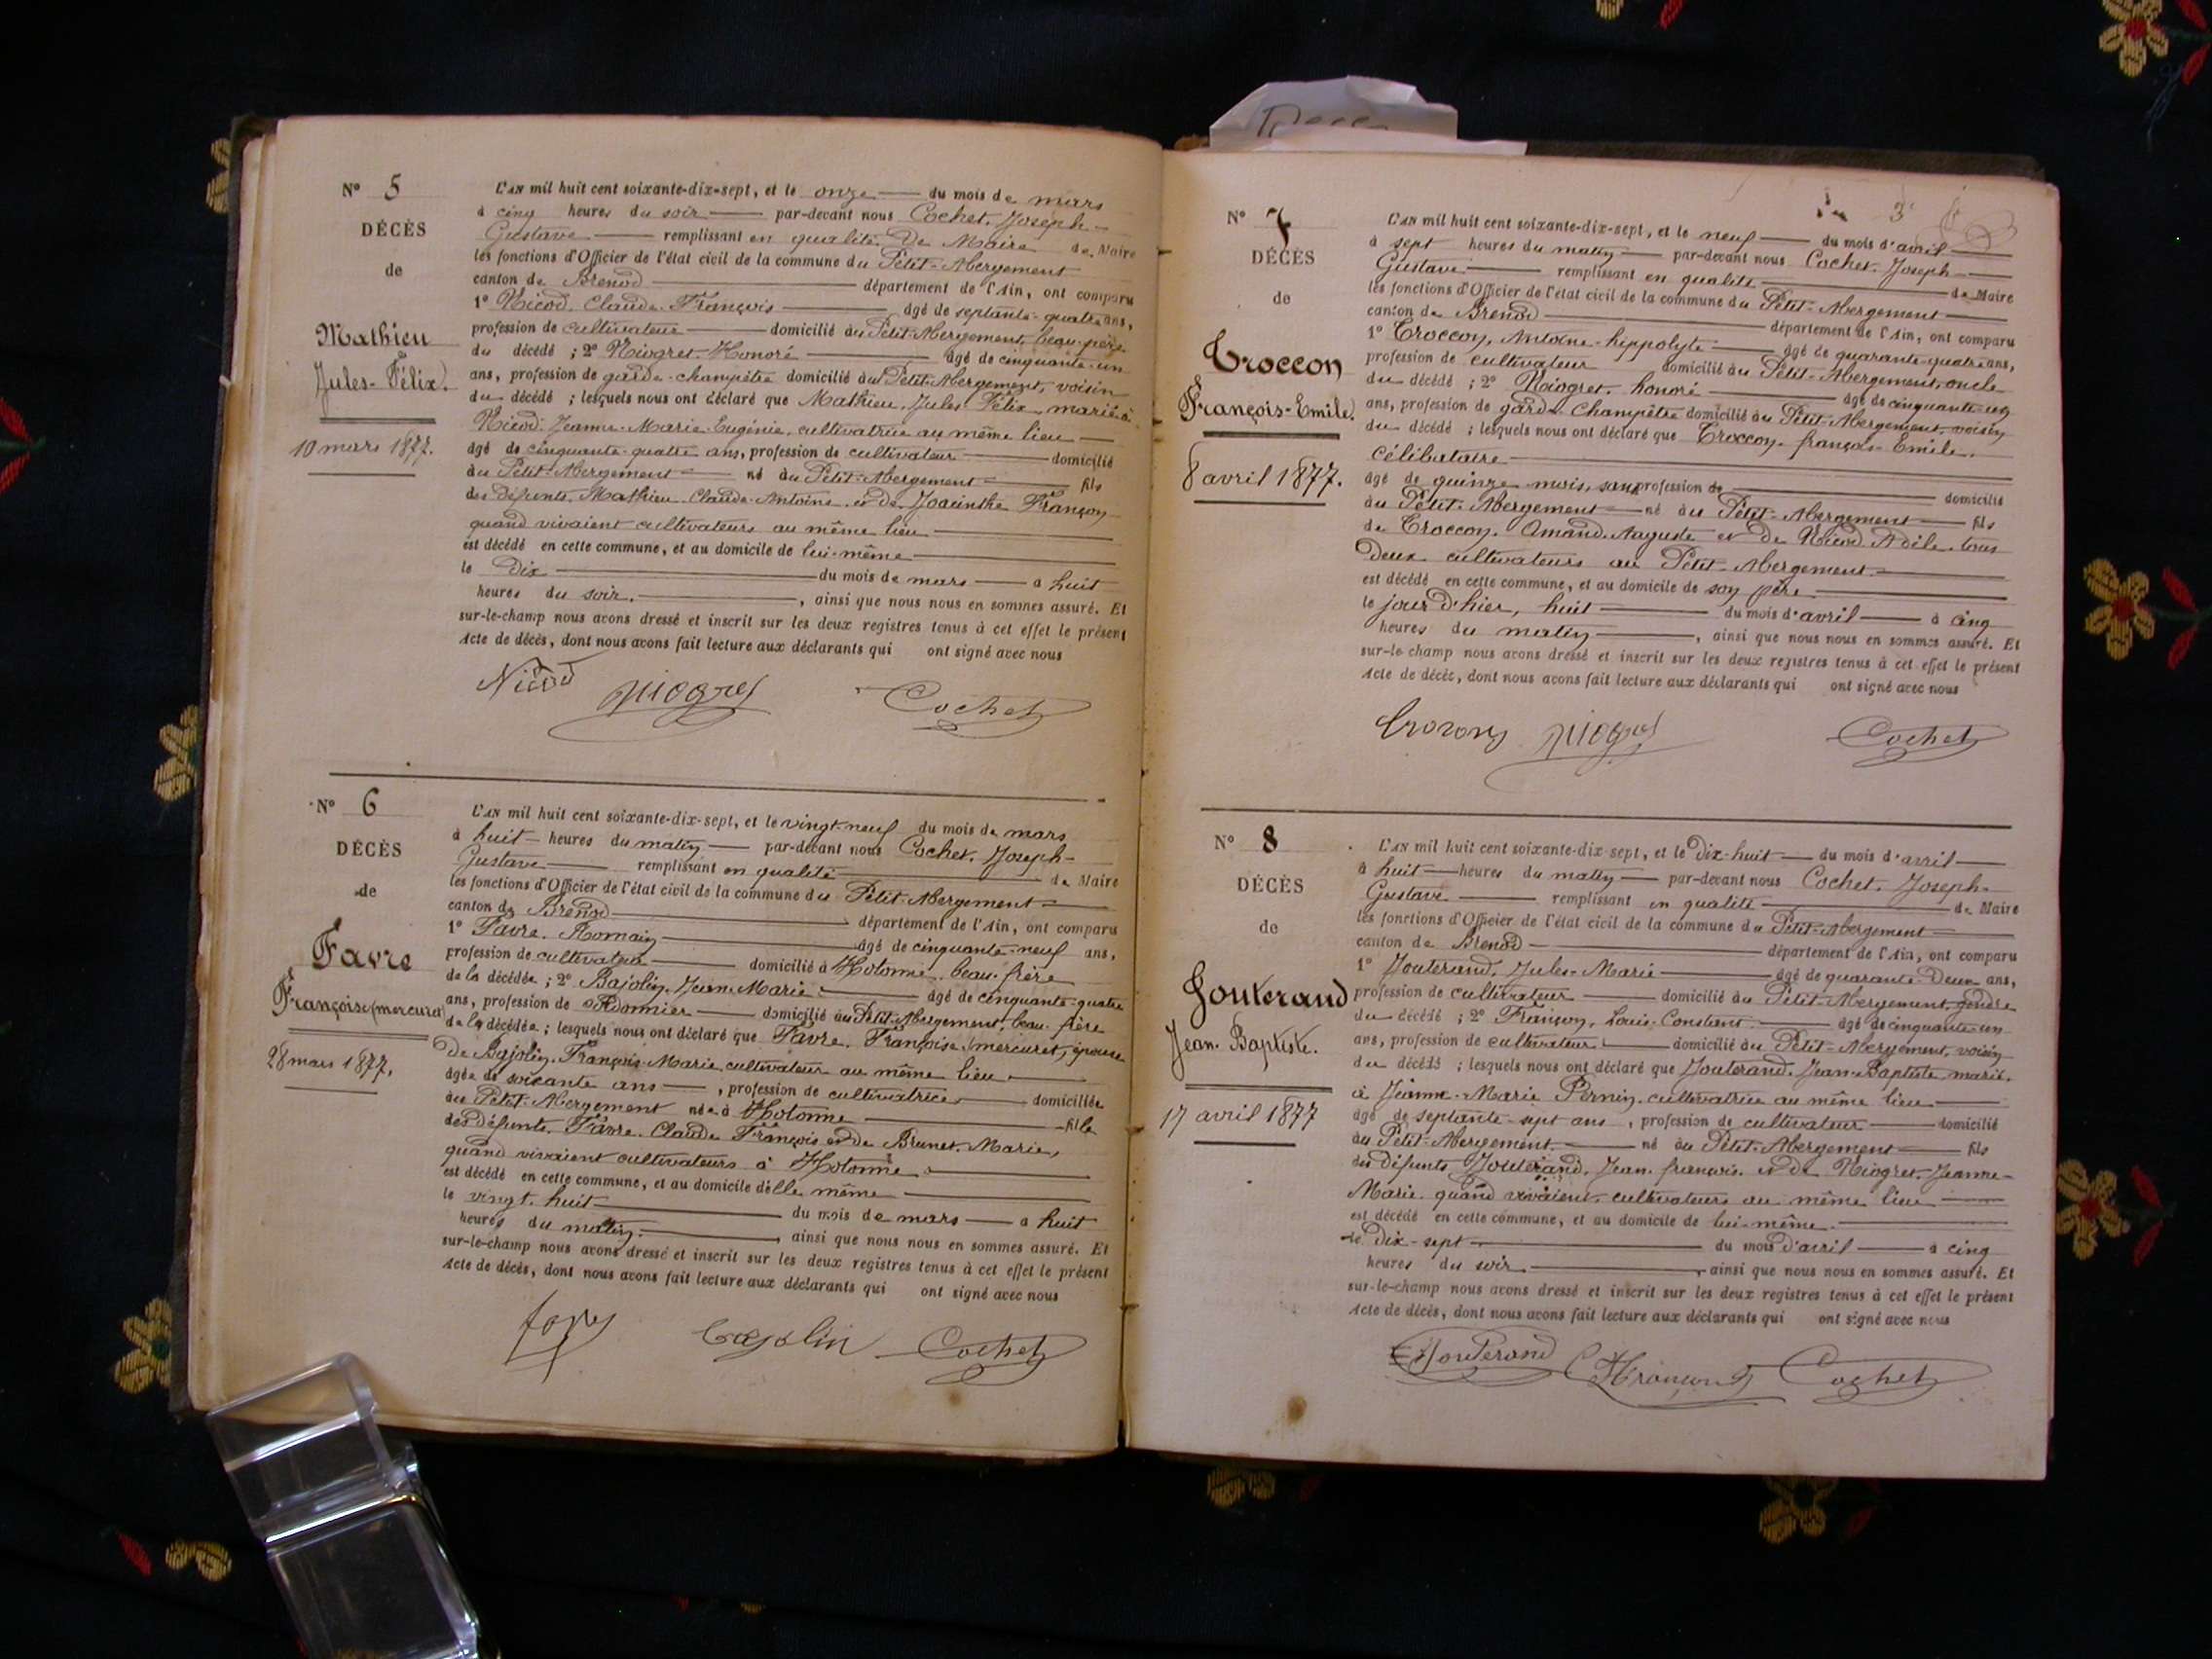 N° 5
DÉCÈS
de
Mathieu
Jules-Félix.
10 mars 1877.
L'AN mil huit cent soixante-dix-sept, et le onze du mois de mars
à cinq heures du soir par-devant nous Cochet. Joseph-
Gustave remplissant en qualité. De Maire de Maire
les fonctions d'Officier de l'état civil de la commune du Petit-Abergement
canton de Brenod département de l'Ain, ont comparu
1° Nicod. Claude-François âgé de septante-quatre ans,
profession de cultivateur domicilié au Petit-Abergement, beau-père
du décédé ; 2° Niogret. Honoré âgé de cinquante-un
ans, profession de garde-champêtre domicilié au Petit-Abergement, voisin
du décédé ; lesquels nous ont déclaré que Mathieu. Jules Félix, marié à
Nicod. Jeanne-Marie-Eugénie, cultivatrice au même lieu
âgé de cinquante-quatre ans, profession de cultivateur domicilié
au Petit-Abergement né au Petit-Abergement fils
des défunts. Mathieu. Claude-Antoine. et de Françon
quand vivaient cultivateurs au même lieu
est décédé en cette commune, et au domicile de lui-même
le Dix du mois de mars à huit
heures du soir. , ainsi que nous nous en sommes assuré. Et
sur-le-champ nous avons dressé et inscrit sur les deux registres tenus à cet effet le présent
Acte de décès, dont nous avons fait lecture aux déclarants qui ont signé avec nous
Nicod Niogret Cochet
N° 6
DÉCÈS
de
Favre
Françoise (mercuret)
28 mars 1877.
L'AN mil huit cent soixante-dix-sept, et le vingt-neuf du mois de mars
à huit heures du matin par-devant nous Cochet. Joseph-
Gustave remplissant en qualité de Maire
les fonctions d'Officier de l'état civil de la commune du Petit-Abergement
canton de Brenod département de l'Ain, ont comparu
1° Favre. Romain âgé de cinquante-neuf ans,
profession de cultivateur domicilié à Hotonne. beau-frère
de la décédée ; 2° Bajolin. Jean-Marie âgé de cinquante-quatre
ans, profession de domicilié au Petit-Abergement, beau-frère
de la décédée ; lesquels nous ont déclaré que Favre. Françoise (mercuret, épouse
de Bajolin. François-Marie, cultivateur au même lieu
âgée de soixante ans , profession de cultivatrice domiciliée
au Petit-Abergement née à Hotonne fille
des défunts. Favre. Claude François et de Brunet. Marie,
quand vivaient cultivateurs à Hotonne
est décédé en cette commune, et au domicile d'elle même
le vingt-huit du mois de mars à huit
heures du matin. , ainsi que nous nous en sommes assuré. Et
sur-le-champ nous avons dressé et inscrit sur les deux registres tenus à cet effet le présent
Acte de décès, dont nous avons fait lecture aux déclarants qui ont signé avec nous
Bajolin Cochet
3
N° 7
DÉCÈS
de
Troccon
François-Emile.
8 avril 1877.
L'AN mil huit cent soixante-dix-sept, et le neuf du mois d'avril
à sept heures du matin par-devant nous Cochet. Joseph
Gustave remplissant en qualité de Maire
les fonctions d'Officier de l'état civil de la commune du Petit-Abergement
canton de Brenod département de l'Ain, ont comparu
1° Troccon, Antoine-hippolyte âgé de quarante-quatre ans,
profession de cultivateur domicilié au Petit-Abergement, oncle
du décédé ; 2° Niogret. honoré âgé de cinquante-un
ans, profession de garde-champêtre domicilié au Petit-Abergement, voisin
du décédé ; lesquels nous ont déclaré que Troccon. françois-Emile.
célibataire
âgé de quinze mois, sans profession de domicilié
au Petit-Abergement né au Petit-Abergement fils
de Troccon. Amand. Auguste et de Nicod. Adèle. tous
Deux cultivateurs au Petit-Abergement
est décédé en cette commune, et au domicile de son père
le jour d'hier, huit du mois d'avril à cinq
heures du matin , ainsi que nous nous en sommes assuré. Et
sur-le-champ nous avons dressé et inscrit sur les deux registres tenus à cet effet le présent
Acte de décès, dont nous avons fait lecture aux déclarants qui ont signé avec nous
Niogret Cochet
N° 8
DÉCÈS
de
Jouterand
Jean-Baptiste.
17 avril 1877
L'AN mil huit cent soixante-dix-sept, et le Dix-huit du mois d'avril
à huit heures du matin par-devant nous Cochet. Joseph-
Gustave remplissant en qualité de Maire
les fonctions d'Officier de l'état civil de la commune du Petit-Abergement
canton de Brenod département de l'Ain, ont comparu
1° Jouterand. Jules-Marie âgé de quarante-Deux ans,
profession de cultivateur domicilié au Petit-Abergement, gendre
du décédé ; 2° Françon, Louis-Constant âgé de cinquante-un
ans, profession de cultivateur domicilié au Petit-Abergement, voisin
du décédé ; lesquels nous ont déclaré que Jouterand. Jean-Baptiste, marié.
à Jeanne-Marie Pernin. cultivatrice au même lieu
âgé de septante-sept ans , profession de cultivateur domicilié
au Petit-Abergement. né au Petit-Abergement fils
des défunts Jouterand. Jean-françois. et de Niogret. Jeanne-
Marie quand vivaient. cultivateurs au même lieu
est décédé en cette commune, et au domicile de lui-même.
le Dix-sept du mois d'avril à cinq
heures du soir , ainsi que nous nous en sommes assuré. Et
sur-le-champ nous avons dressé et inscrit sur les deux registres tenus à cet effet le présent
Acte de décès, dont nous avons fait lecture aux déclarants qui ont signé avec nous
Jouterand Françon Cochet